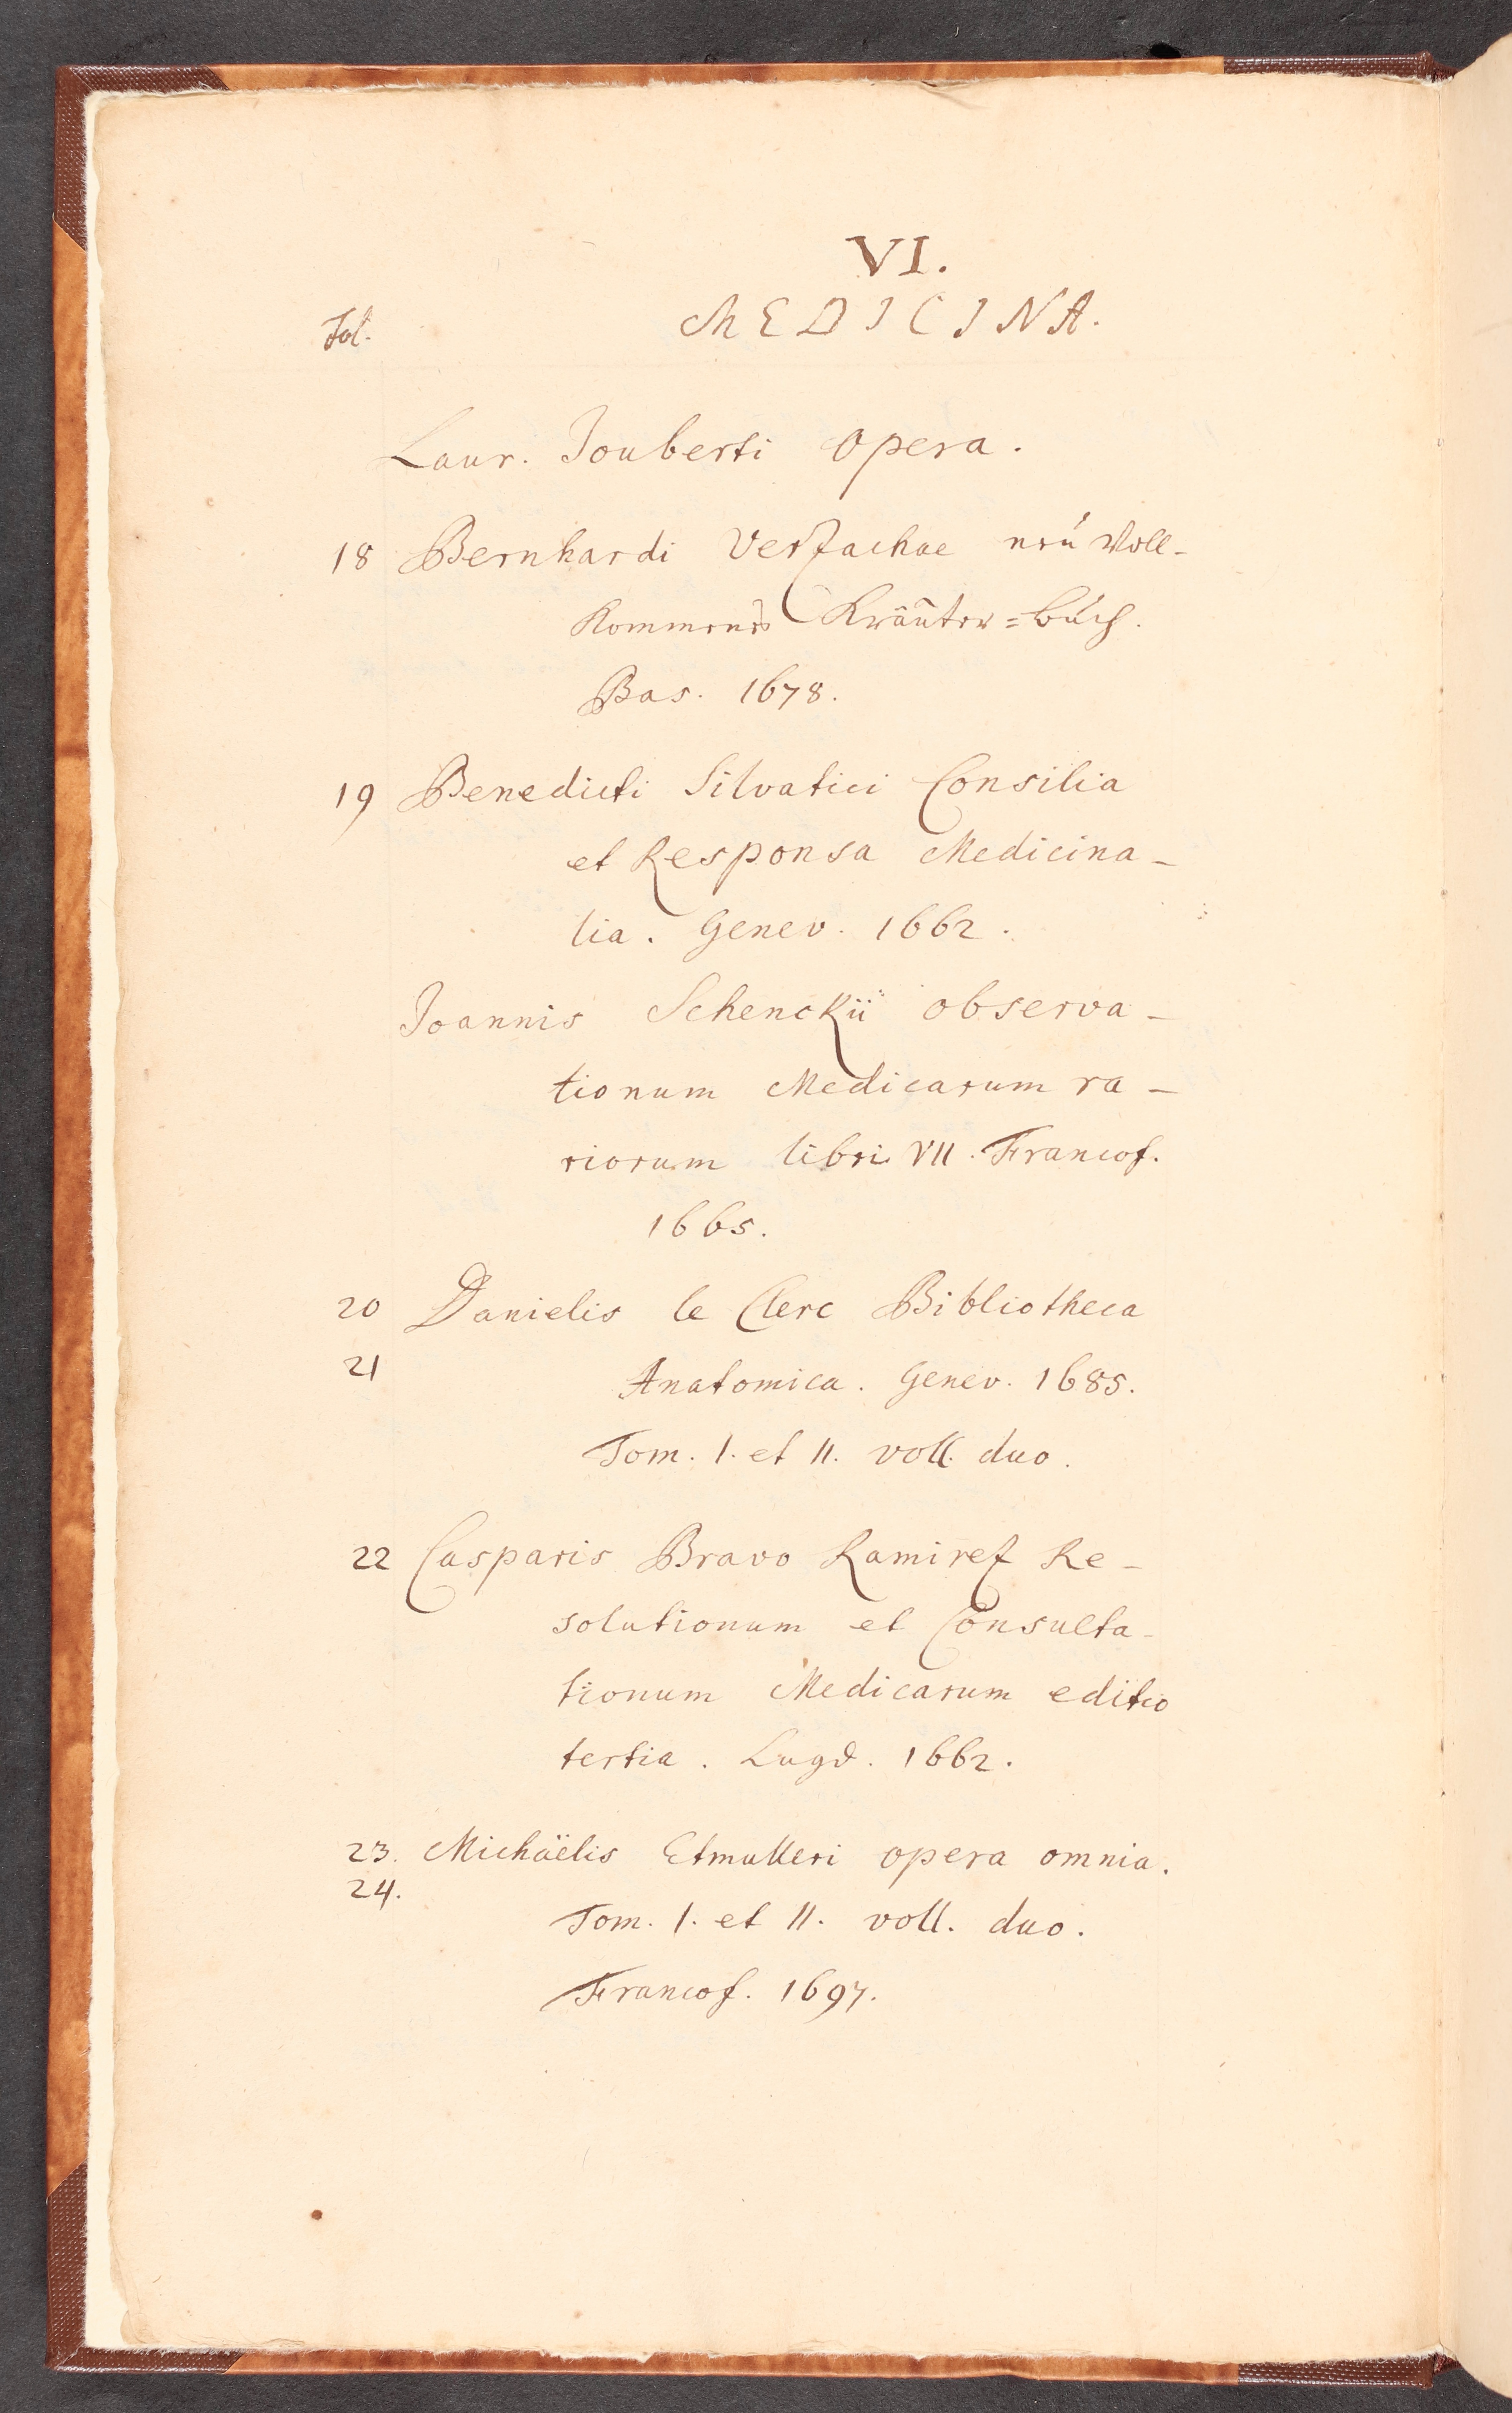 VI.
Fol. MEDICINA.
Laur. Jouberti Opera.
18 Bernhardi Verzachae neú Voll-
Kommenes Kräuter=Búch.
Bas. 1678.
19 Benedicti Silvatici Consilia
et Responsa Medicina-
lia. Genev. 1662.
Joannis Schenckii observa-
tionum Medicarum ra-
riorum libri VII. Francof.
1665.
20 Danielis le Clerc Bibliotheca
21 Anatomica. Genev. 1685.
Tom. I. et II. voll. duo.
22 Casparis Bravo Ramirez Re-
solutionum et Consulta-
tionum Medicarum editio
tertia. Lugd. 1662.
23. Michäelis Etmulleri opera omnia.
24.
Tom. I. et II. voll. duo.
Francof. 1697.